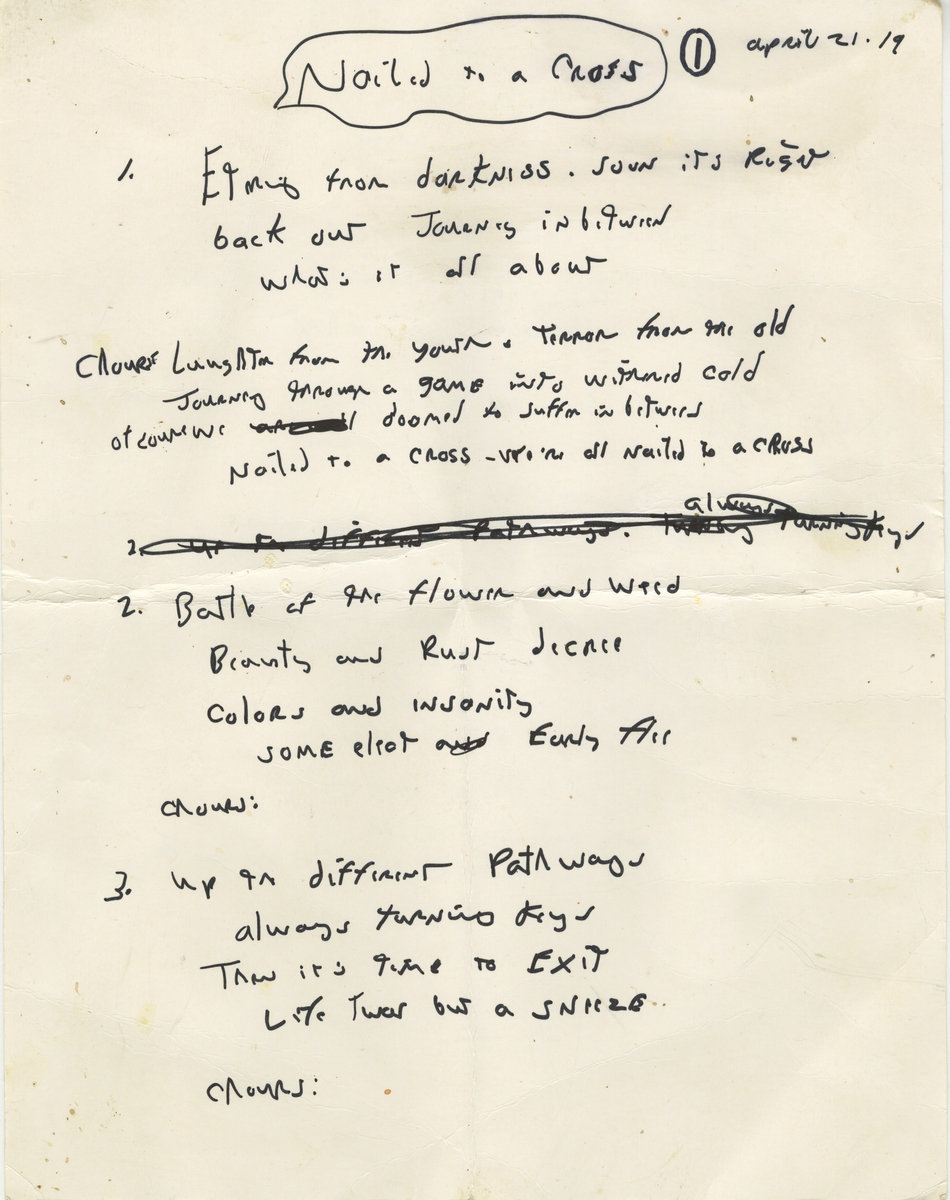 Nailed to a Cross ① april 21.19
1. from darkness. soon its Right
back out Journey in between
whats it all about
Chours Laughter from the youth. Terror from the old
Journey through a game into withered cold
of course we doomed to suffer in between
Nailed to a cross - we're all nailed to a cross
always
2. up on different Pathways. turning keys
2. Battle of the flower and weed
Beauty and Rust decree
Colors and insanity
some elect Early flee
chours:
3. up on different Pathways
always turning keys
Then it's time to EXIT
Life Twas but a SNEEZE..
chours: